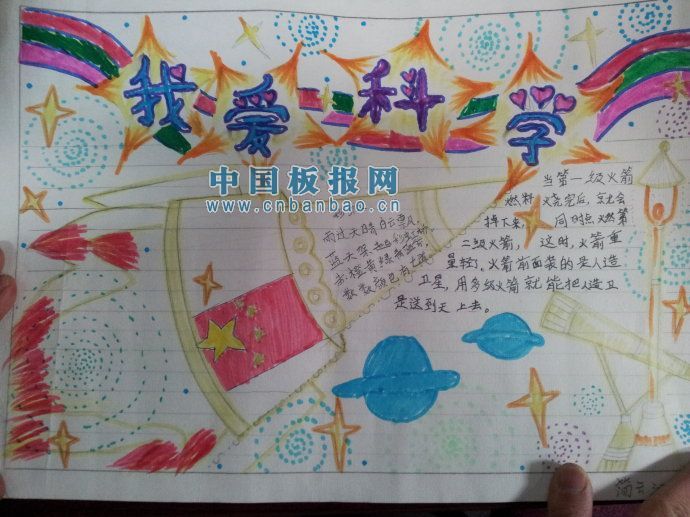 我爱科学
中国板报网
www.cnbanbao.cn
雨过天晴白云飘,
蓝天架起彩虹桥。
赤橙黄绿青蓝紫,
数数颜色有七道
当第一级火箭
燃料烧完后,就会
掉下来, 同时点燃第
二级火箭, 这时,火箭重
量轻了,火箭前面装的是人造
卫星,用多级火箭就能把人造卫
星送到天上去。